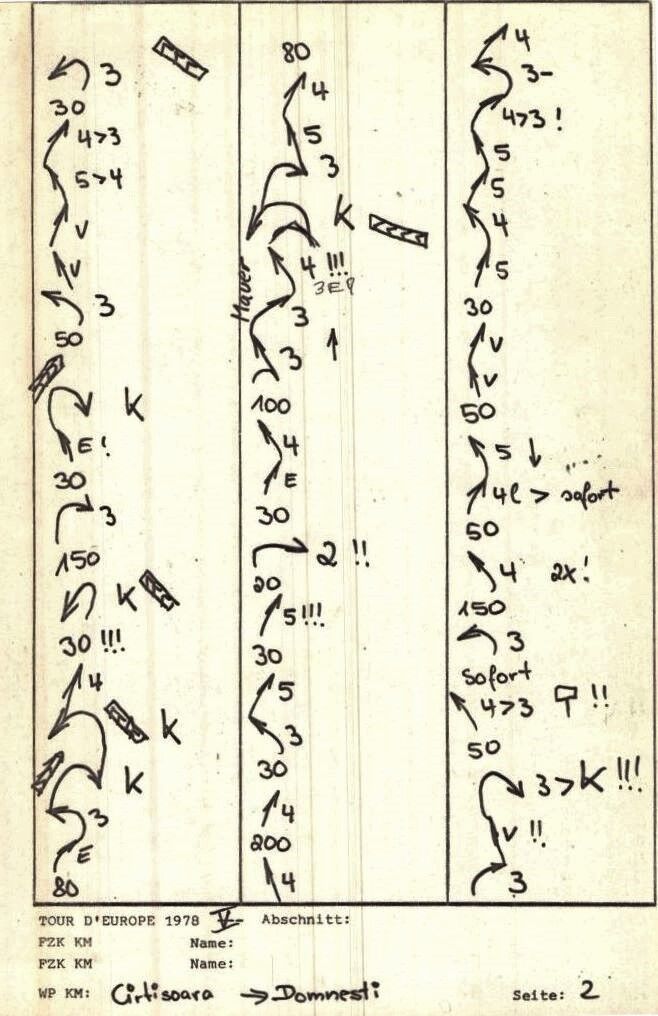 3
30
4>3
5>4
v
v
3
50
K
E!
30
3
150
K
30 !!!
4
K
K
3
E
80
80
4
5
3
K
4 !!!
Mauer
3
3
100
4
E
30
2 !!
20
5!!!
30
5
3
30
4
200
4
4
3-
4>3 !
5
5
4
5
30
v
v
50
5
4l > sofort
50
4 2x!
150
3
Sofort
4>3 !!
50
3 > K !!!
v !!
3
TOUR D'EUROPE 1978 V Abschnitt:
FZK KM Name:
FZK KM Name:
WP KM: Cirtisoara → Domnesti Seite: 2